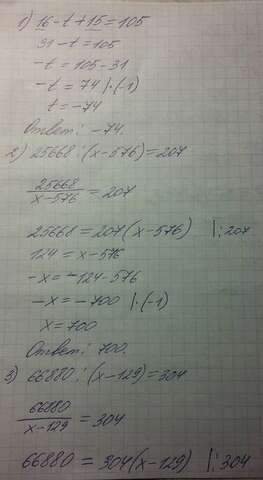 1) 16-t+15=105
31-t=105
-t=105-31
-t=74 |·(-1)
t=-74
Ответ: -74.
2) 25668:(x-576)=207
25668/x-576 = 207
25668=207(x-576) |:207
124=x-576
-x=-124-576
-x=-700 |·(-1)
x=700
Ответ: 700.
3) 66880:(x-129)=304
66880/x-129 = 304
66880=304(x-129) |:304